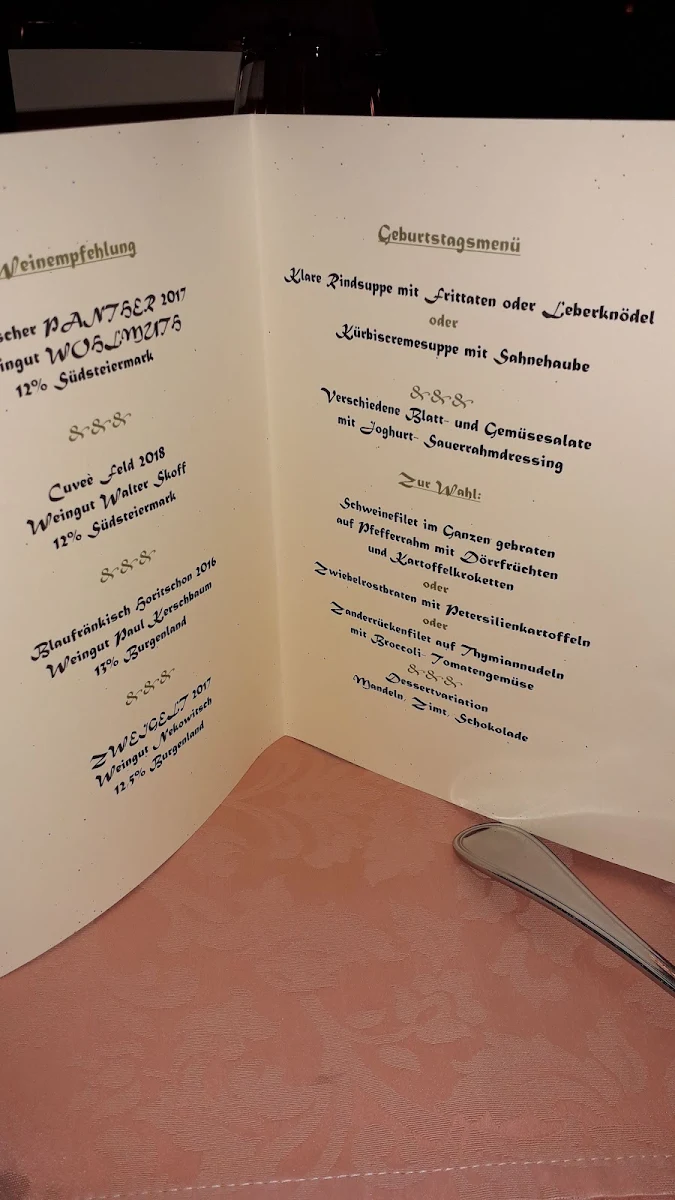 Weinempfehlung
PANTHER 2017
WOHLMUTH
12% Südsteiermark
Cuveè Feld 2018
Weingut Walter Skoff
12% Südsteiermark
Blaufränkisch Horitschon 2016
Weingut Paul Kerschbaum
13% Burgenland
ZWEIGELT 2017
Weingut Nekowitsch
12,5% Burgenland
Geburtstagsmenü
Klare Rindsuppe mit Frittaten oder Leberknödel
oder
Kürbiscremesuppe mit Sahnehaube
Verschiedene Blatt- und Gemüsesalate
mit Joghurt- Sauerrahmdressing
Zur Wahl:
Schweinefilet im Ganzen gebraten
auf Pfefferrahm mit Dörrfrüchten
und Kartoffelkroketten
oder
Zwiebelrostbraten mit Petersilienkartoffeln
oder
Zanderrückenfilet auf Thymiannudeln
mit Broccoli- Tomatengemüse
Dessertvariation
Mandeln, Zimt, Schokolade